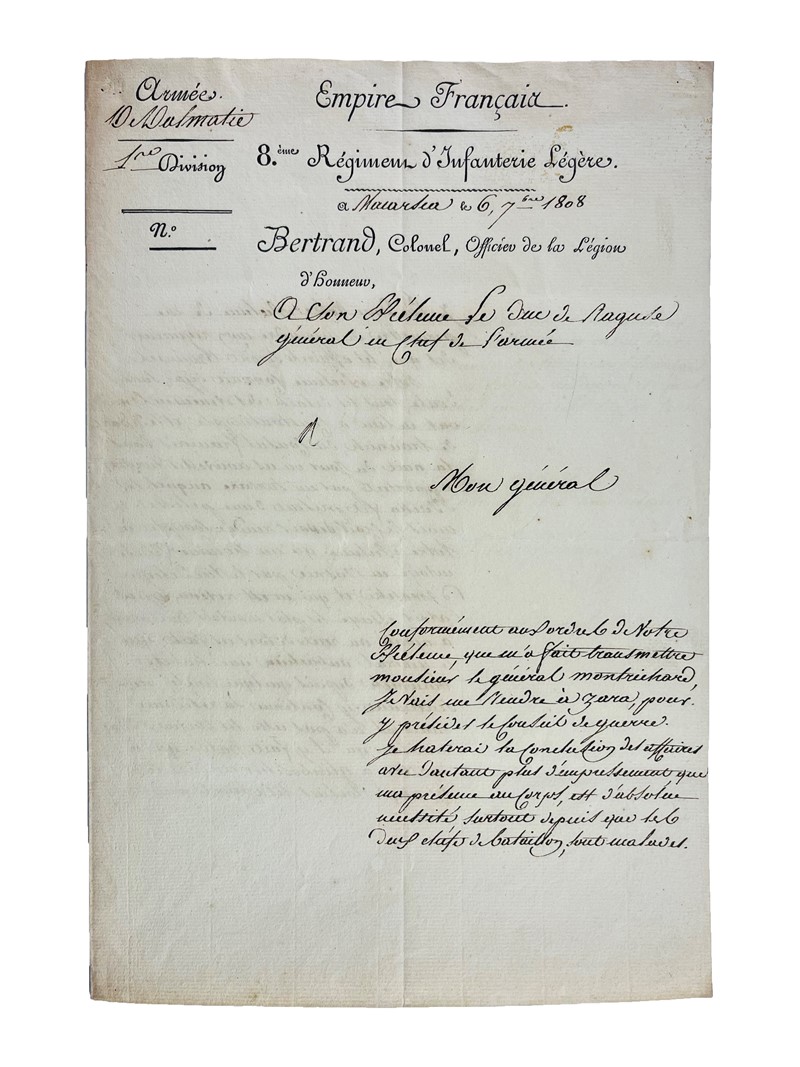 Armée
De Dalmatie
1re Division
N.º
Empire Français.
8.ème Régiment d'Infanterie Légère.
a Macarsca le 6, 7bre 1808
Bertrand, Colonel, Officier de la Légion
d'honneur,
A Son Excellence Le duc de Raguse
général en Chef de l'armée
Mon général
Conformément aux ordres de Votre
Excellence, que m'a fait transmettre
monsieur le général montrichard,
Je Vais me Rendre à Zara, pour
y présider le Conseil de guerre.
Je haterai la Conclusion des affaires
avec d'autant plus d'empressement, que
ma présence au Corps, est d'absolue
nécessité surtout depuis que les
deux chefs de bataillon, sont malades.